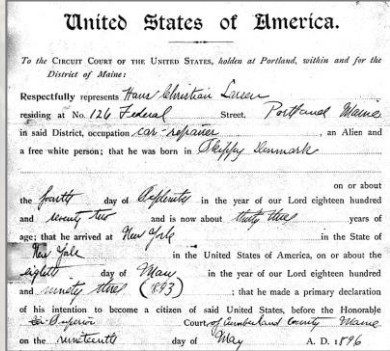 United States of America.
To the CIRCUIT COURT OF THE UNITED STATES, holden at Portland, within and for the
District of Maine:
Respectfully represents Hans Christian Larsen
residing at No. 126 Federal Street, Portland Maine
in said District, occupation car-repairer, an Alien and
a free white person; that he was born in Denmark
on or about
the fourth day of in the year of our Lord eighteen hundred
and seventy two and is now about thirty three years of
age; that he arrived at New York in the State of
New York in the United States of America, on or about the
eighth day of May in the year of our Lord eighteen hundred
and ninety three (893); that he made a primary declaration
of his intention to become a citizen of said United States, before the Honorable
Superior Court, of Cumberland County Maine
on the nineteenth day of May A. D. 1896